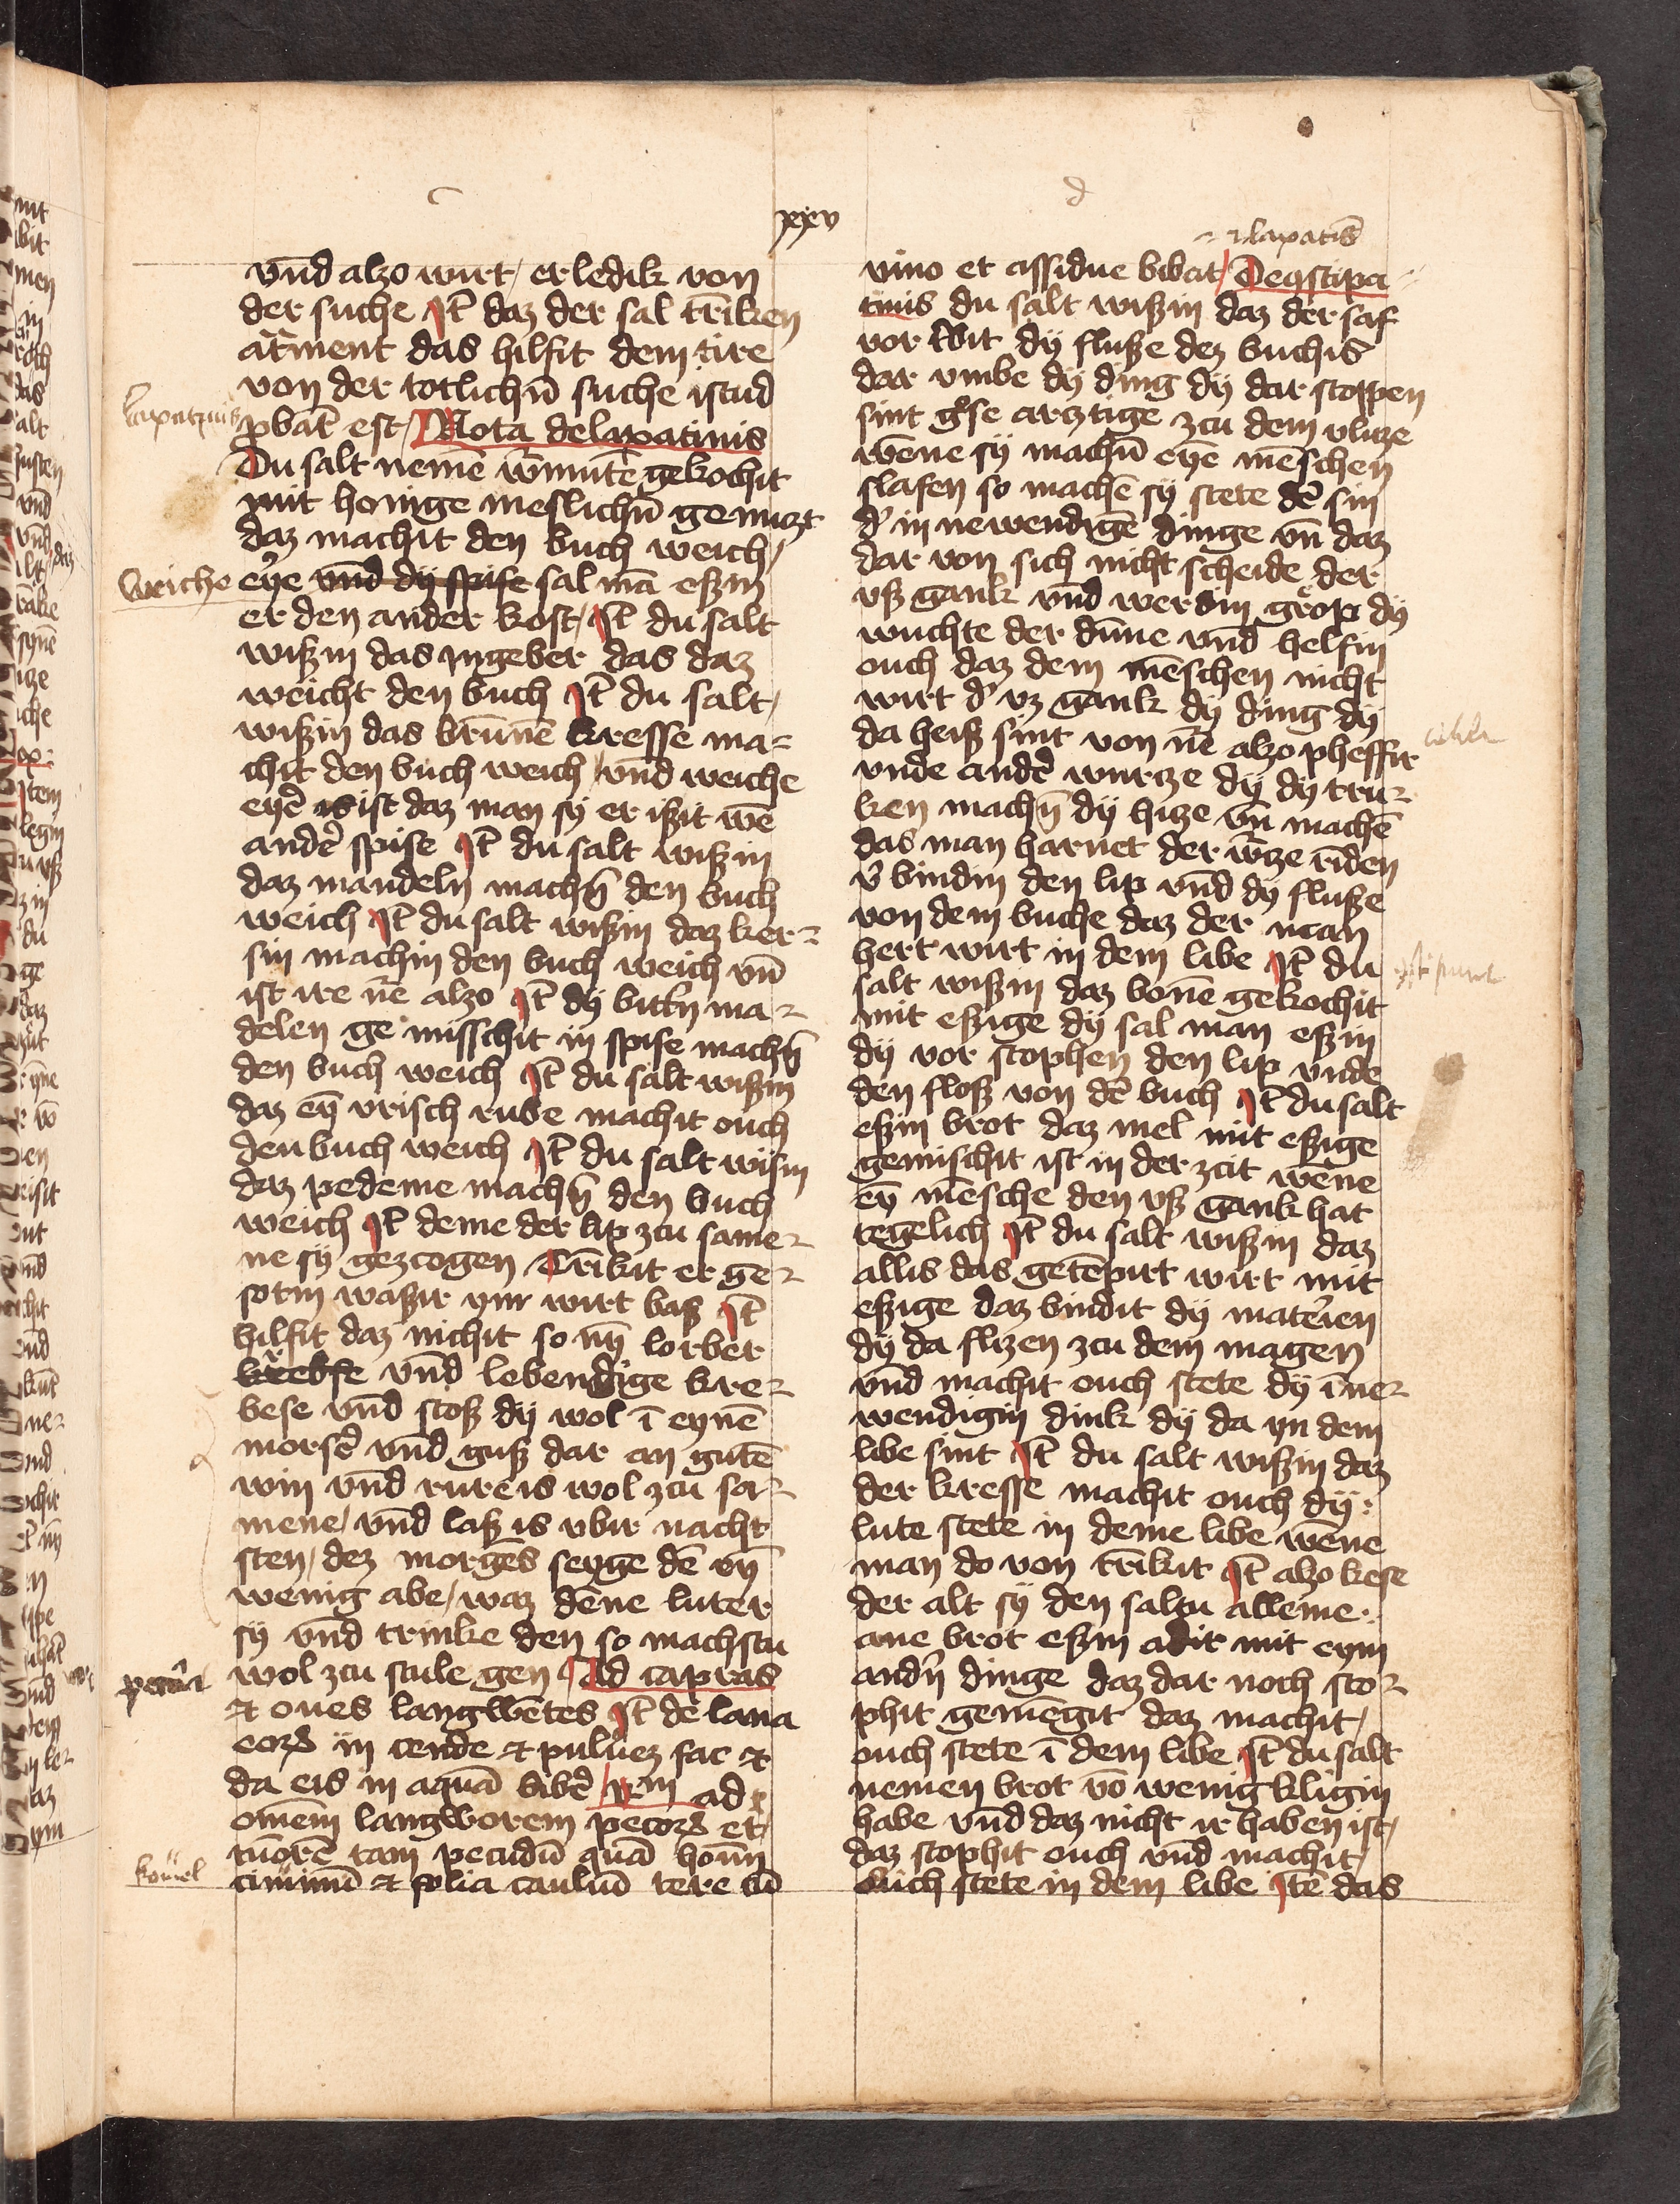 c
d
xxv
vnd alzo wirt / er ledik von
der suche It daz der sal trīken
atrment das hilfit dem tire
von der totlichn̄ suche istud
ꝓbat̄ est / Nota de laxatiuis
Du salt nemē wm̄utē gekochit
mit honige meslichn̄ genuzt
daz machit den buch weich /
weiche eẏe vnd dÿ spise sal mā eßzin
er den ander kost / It du salt
wißzin das yngeber das daz
weicht den buch It du salt /
wißzin das brūnē kresse ma=
chit den buch weich / vnd weiche
eyer̄ is ist daz man sÿ er ißzit wē
ander̄ spise It du salt wißzin
daz mandeln machn̄ den buch
weich It du salt wißzin daz ker=
sin machin den buch weich vn̄
ist ire nē alzo It dÿ bittn̄ ma=
delen ge misschit in spise machn̄
den buch weich It du salt wißzin
daz eyn vrisch rube machit ouch
den buch weich It du salt wisin
daz pedeme machn̄ den buch
weich It deme der lip zcu same=
ne sÿ gezcogen Trīkit er ge=
sotin waßzir ym wirt baß It
hilfit daz nichit so nÿ lorber
krebse vnd lebendige kre=
bese vnd stoß dÿ wol ī eynē
morser̄ vnd guß dar an gutē
win vnd rure is wol zcu sa=
mene / vnd laß is vbir nacht
sten / dez morgēs seyge dē eyn
wenig abe / waz dēne luter
sÿ vnd trinke den so machstu
wol zcu stule gen Ad capras
et oues langwētes It de lana
eorꝫ in cende et puluez fac et
da eis in aquā biber̄ / Rm̄ ad
omēm langworem pecorꝫ et /
tuorē tam pecudū quā homn̄
ciminū et folia cauliū tere cū
laxatiuis
kömel
et laxatis
vino et assidue bibat / De ɔstipa=
tiuis du salt wißzin daz der saf
vor tbit dÿ flußze dez buchis
dar vmbe dÿ ding dÿ dar stoppen
sint gͦse arztige zcu dem vluze
wēne sÿ machn̄ eyē mēschen
slafen so machē sÿ stete dē sin
d' in newendigē dinge vn̄ daz
dar von sich nicht scheide der
vß gank vnd werdin grop dÿ
wuchte der dūne vnd helfin
ouch daz dem mēschen nicht
wirt d' vz gank dÿ ding dÿ
da heiß sint von nē alzo pheffir
vnde ander̄ wurtze dÿ dÿ tru=
ken machn̄ dÿ hitze vn̄ machē
das man harnet der w̄tze rīden
v' bindin den lip vnd dÿ flußze
von dem buche daz der man
hert wirt in dem libe It du
salt wißzin daz bonē gekochit
mit eßzige dÿ sal man eßzin
dÿ vor stophen den lip vnde
den floß von dē buch It du salt
eßzin brot daz mel mit eßzige
gemischit ist in der zcit wēne
eyn mēsche den vß gank hat
tegelich It du salt wißzin daz
allis das getēpirt wirt mit
eßzige daz bindit dÿ mater̄ien
dÿ da flizen zcu dem magen
vnd machit ouch stete dÿ īne=
wendigin dink dÿ da yn dem
libe sint It du salt wißzin daz
der kresse machit ouch dÿ
lute stete in deme libe wēne
man do von trīkit It alzo kese
der alt sÿ den saltu alleine
ane brot eßzin adir mit eyn
andn̄ dinge daz dar noch sto=
phit gemēgit daz machit /
ouch stete ī dem libe It du salt
nemen brot vō wenig kligin
habe vnd daz nicht ir haben ist /
daz stophit ouch vnd machit /
ouch stete in dem libe Itē das